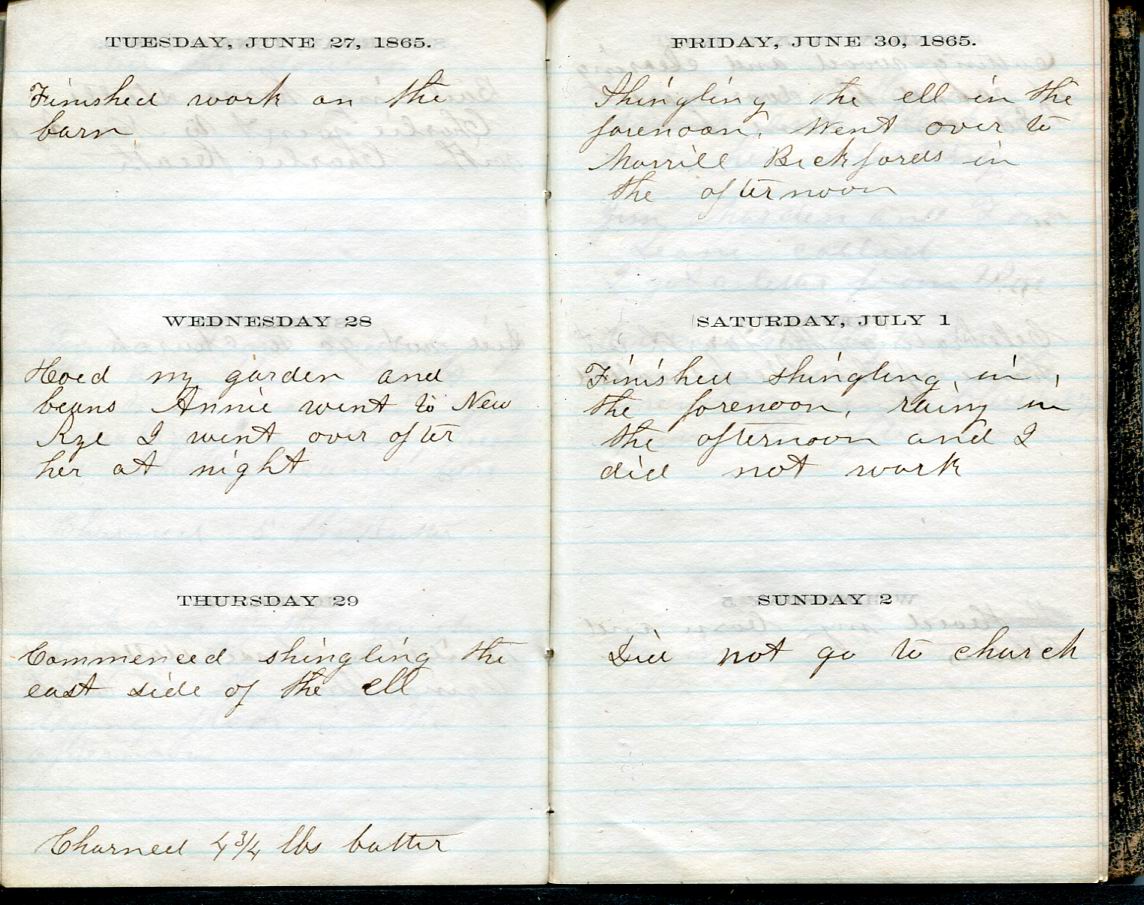 TUESDAY, JUNE 27, 1865.
Finished work on the
barn
WEDNESDAY 28
Hoed my garden and
beans Annie went to New
Rye I went over after
her at night
THURSDAY 29
Commenced shingling the
east side of the ell
Churned 4 3/4 lbs butter
FRIDAY, JUNE 30, 1865.
Shingling the ell in the
forenoon. Went over to
Morrill Bickfords in
the afternoon
SATURDAY, JULY 1
Finished shingling in
the forenoon, rainy in
the afternoon and I
did not work
SUNDAY 2
Did not go to church